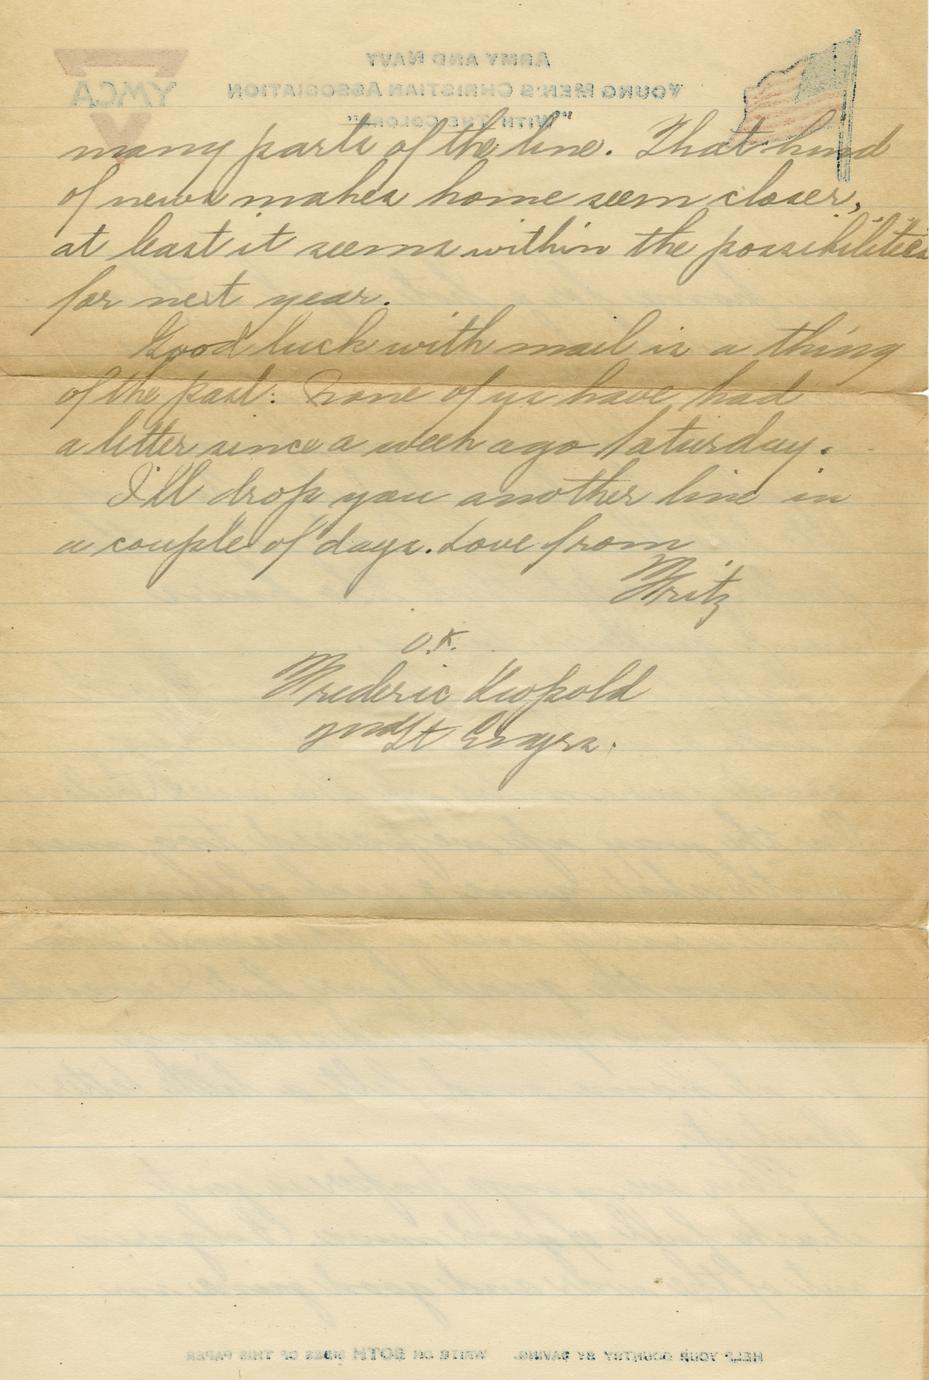 ARMY AND NAVY
YOUNG MEN'S CHRISTIAN ASSOCIATION
"WITH THE COLORS"
YMCA
many parts of the line. That kind
of news makes home seem closer,
at least it seems within the possibilities
for next year.
Good luck with mail is a thing
of the past: None of us have had
a letter since a week ago Saturday.
I'll drop you another line in
a couple of days. Love from
Fritz
O.K.
Frederic Leopold
2nd Lt Engrs.
HELP YOUR COUNTRY BY SAVING. WRITE ON BOTH SIDES OF THIS PAPER